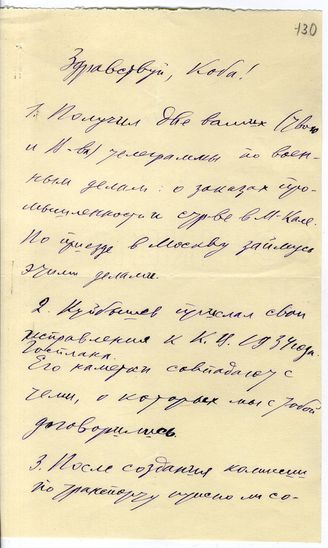 130
Здравствуй, Коба!
1. Получил две ваших (твою
и М-ва) телеграммы по воен-
ным делам: о заказах про-
мышленности и
По приезде в Москву займусь
этими делами.
2. Куйбышев прислал свои
исправления к К.Ц. 1934 года
Госплана.
Его наметки совпадают с
теми, о которых мы с тобой
договорились.
3. После создания комиссии
по транспорту нужно ли со-